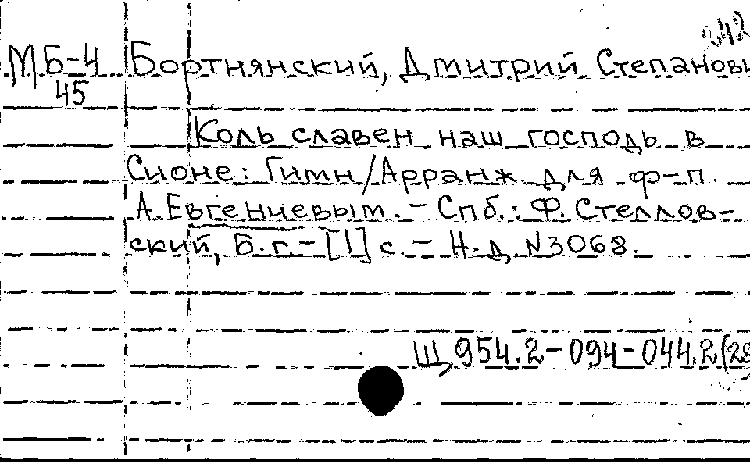 242
МБ-4 Бортнянский, Дмитрий Степанови
45
Коль славен наш господь в
Сионе: Гимн/Арранж. для ф-п.
А. Евгениевым. – Спб.: Ф. Стеллов-
ский, Б. г. – [1] с. – Н. д. N3068.
Щ 954.2-094-044.2(28